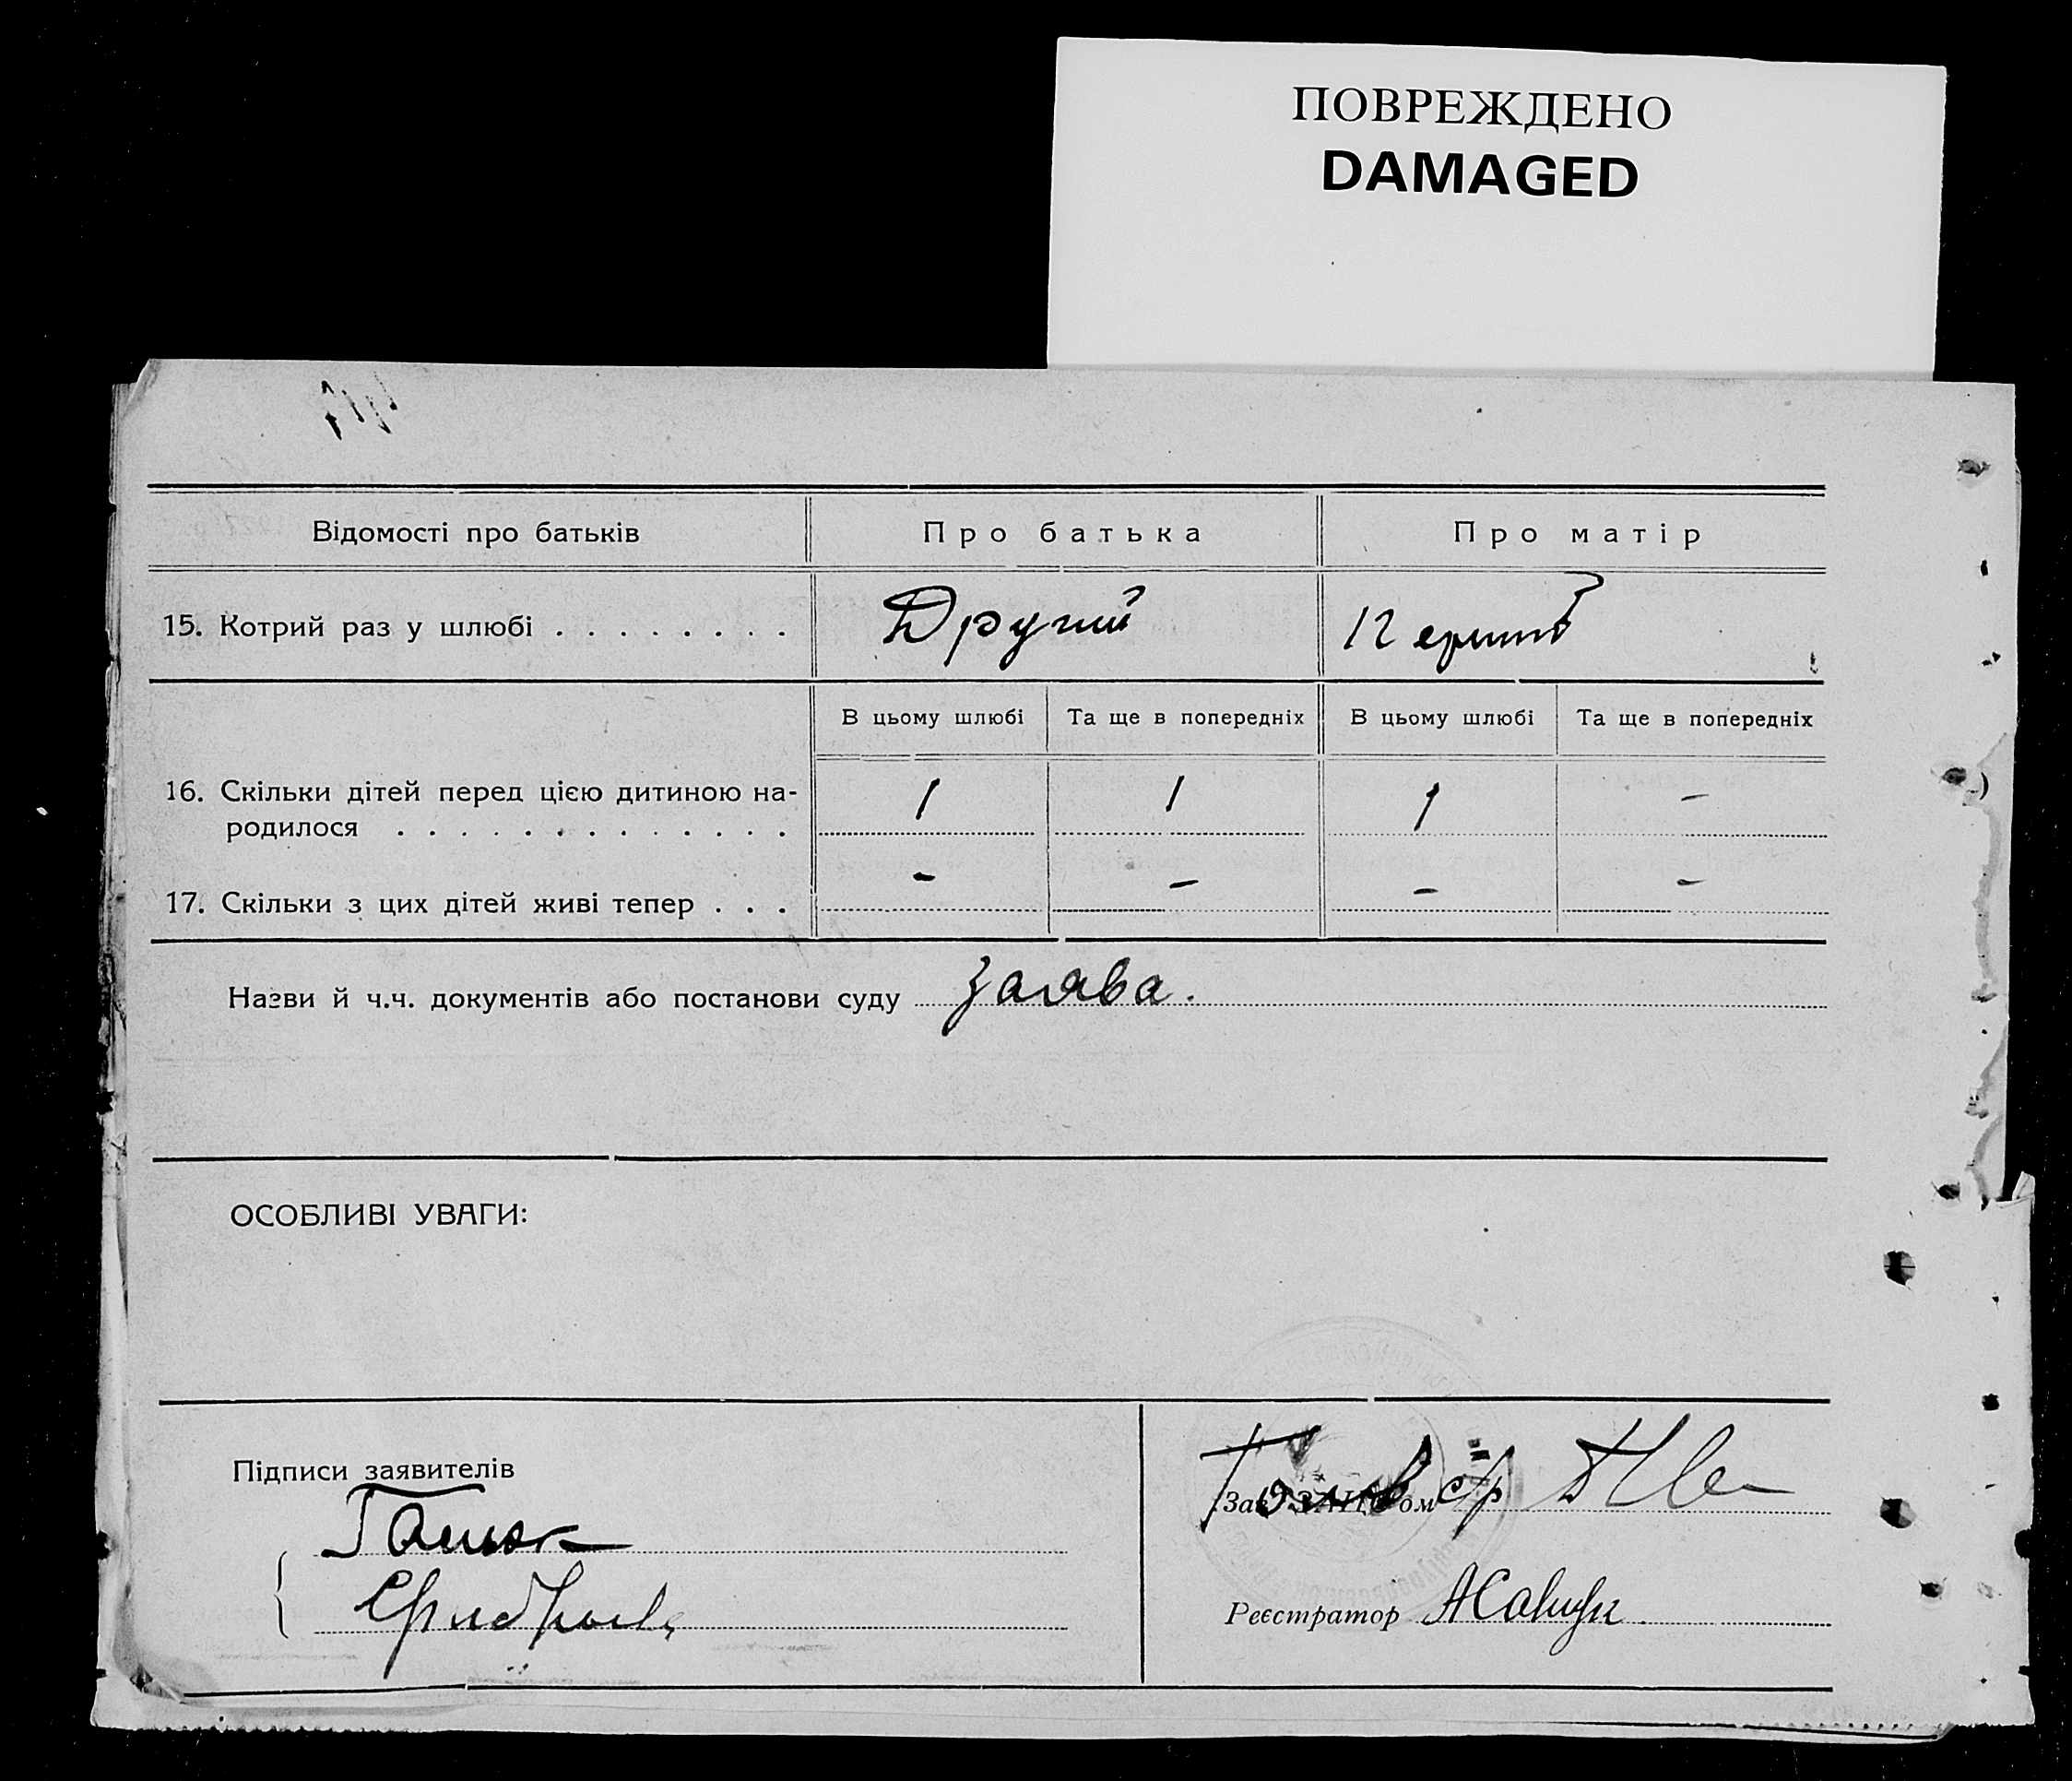 ПОВРЕЖДЕНО
DAMAGED
Відомості про батьків
Про батька
Про матір
15. Котрий раз у шлюбі . . . . . . . .
Другий
Перший
В цьому шлюбі
Та ще в попередніх
В цьому шлюбі
Та ще в попередніх
16. Скільки дітей перед цією дитиною на-
родилося . . . . . . . . . . . . .
1
1
1
-
17. Скільки з цих дітей живі тепер . . .
-
-
-
-
Назви й ч.ч. документів або постанови суду заява.
ОСОБЛИВІ УВАГИ:
Підписи заявителів
Зав. ЗАГС'ом
Реєстратор